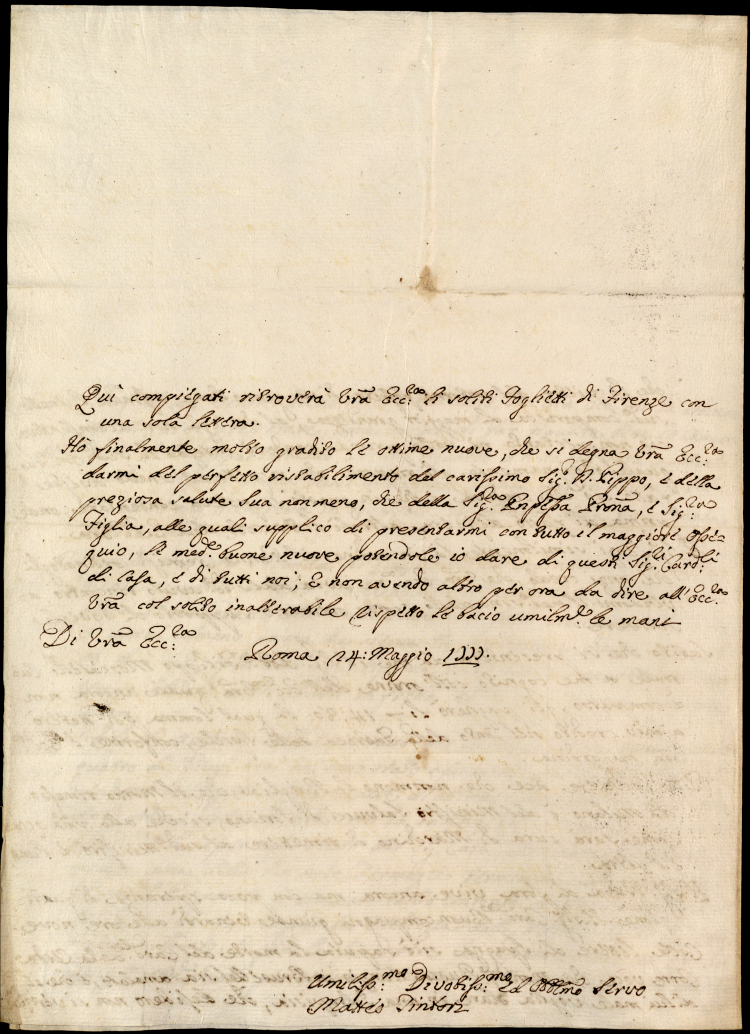 Quì compiegati ritroverà Vrã Ecc:za li soliti Foglietti di Firenze con
una sola lettera.
Ho finalmente molto gradito le ottime nuove, che si degna Vrã Ecc:za
darmi del perfetto ristabilimento del carissimo Sig:r D. Pippo, e della
preziosa salute Sua non meno, che della Sig:ra Pnpessa Prona, e Sig:ra
Figlia, alle quali supplico di presentarmi con tutto il maggiore osse-
quio, le med:e buone nuove potendole io dare di questi Sig:ri Card:li
di Casa, e di tutti noi; E non avendo altro per ora da dire all'Ecc:za
Vrã col solito inalterabile rispetto le bacio umilm:e le mani
Di Vrã Ecc:za
Roma 24: Maggio
Umiliss:mo Divotiss:mo ed Obblmo Servo
Matteo Pintori